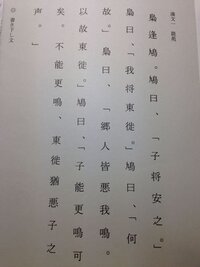 漢文一 説苑
梟逢鳩。鳩曰、「子将安之。」
梟曰、「我将東徙。」鳩曰、「何
故。」梟曰、「郷人皆悪我鳴。
以故東徙。」鳩曰、「子能更鳴可
矣。不能更鳴、東徙猶悪子之
声。」
書き下し文